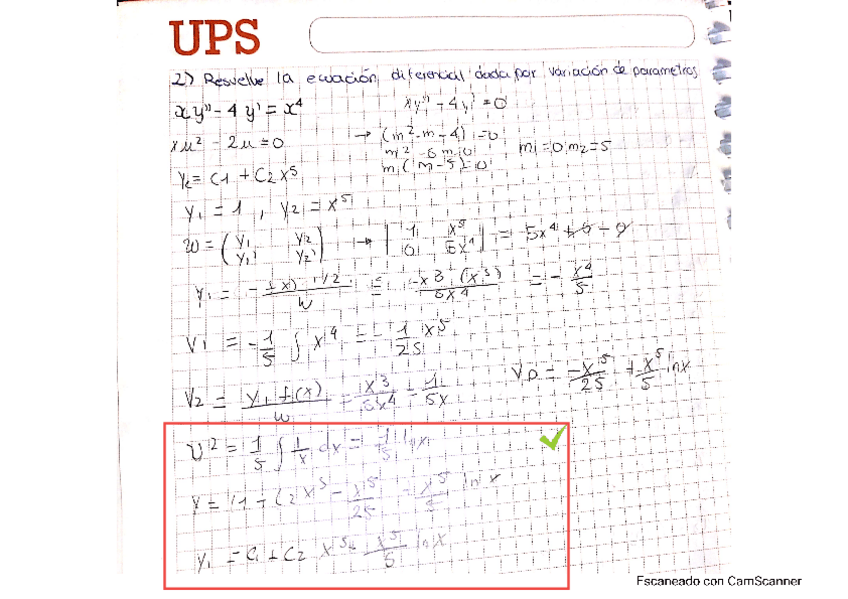 UPS
2) Resuelve la ecuación diferencial dada por variación de parametros
xy'' - 4y' = x⁴
xy'' - 4y' = 0
xu² - 2u = 0
→ (m² - m - 4) = 0
m² - 5m = 0
m(m - 5) = 0
m1 = 0 m2 = 5
y2 = C1 + C2 x⁵
y1 = 1 , y2 = x⁵
w = (y1 y2 y1' y2') → | 1 x⁵ 0 5x⁴ | = 5x⁴ + 0 - 0
y1 = - f(x) y2 / w = -x³ (x⁵) / 5x⁴ = - x⁴/5
V1 = - 1/5 ∫ x⁴ = - 1/25 x⁵
V2 = y1 f(x) / w = x³/5x⁴ = 1/5x
Vp = -x⁵/25 + x⁵/5 lnx
U² = 1/5 ∫ 1/x dx = 1/5 lnx
y = C1 + C2 x⁵ - x⁵/25 + x⁵/5 ln x
y1 = C1 + C2 x⁵ + x⁵/5 lnx
Escaneado con CamScanner